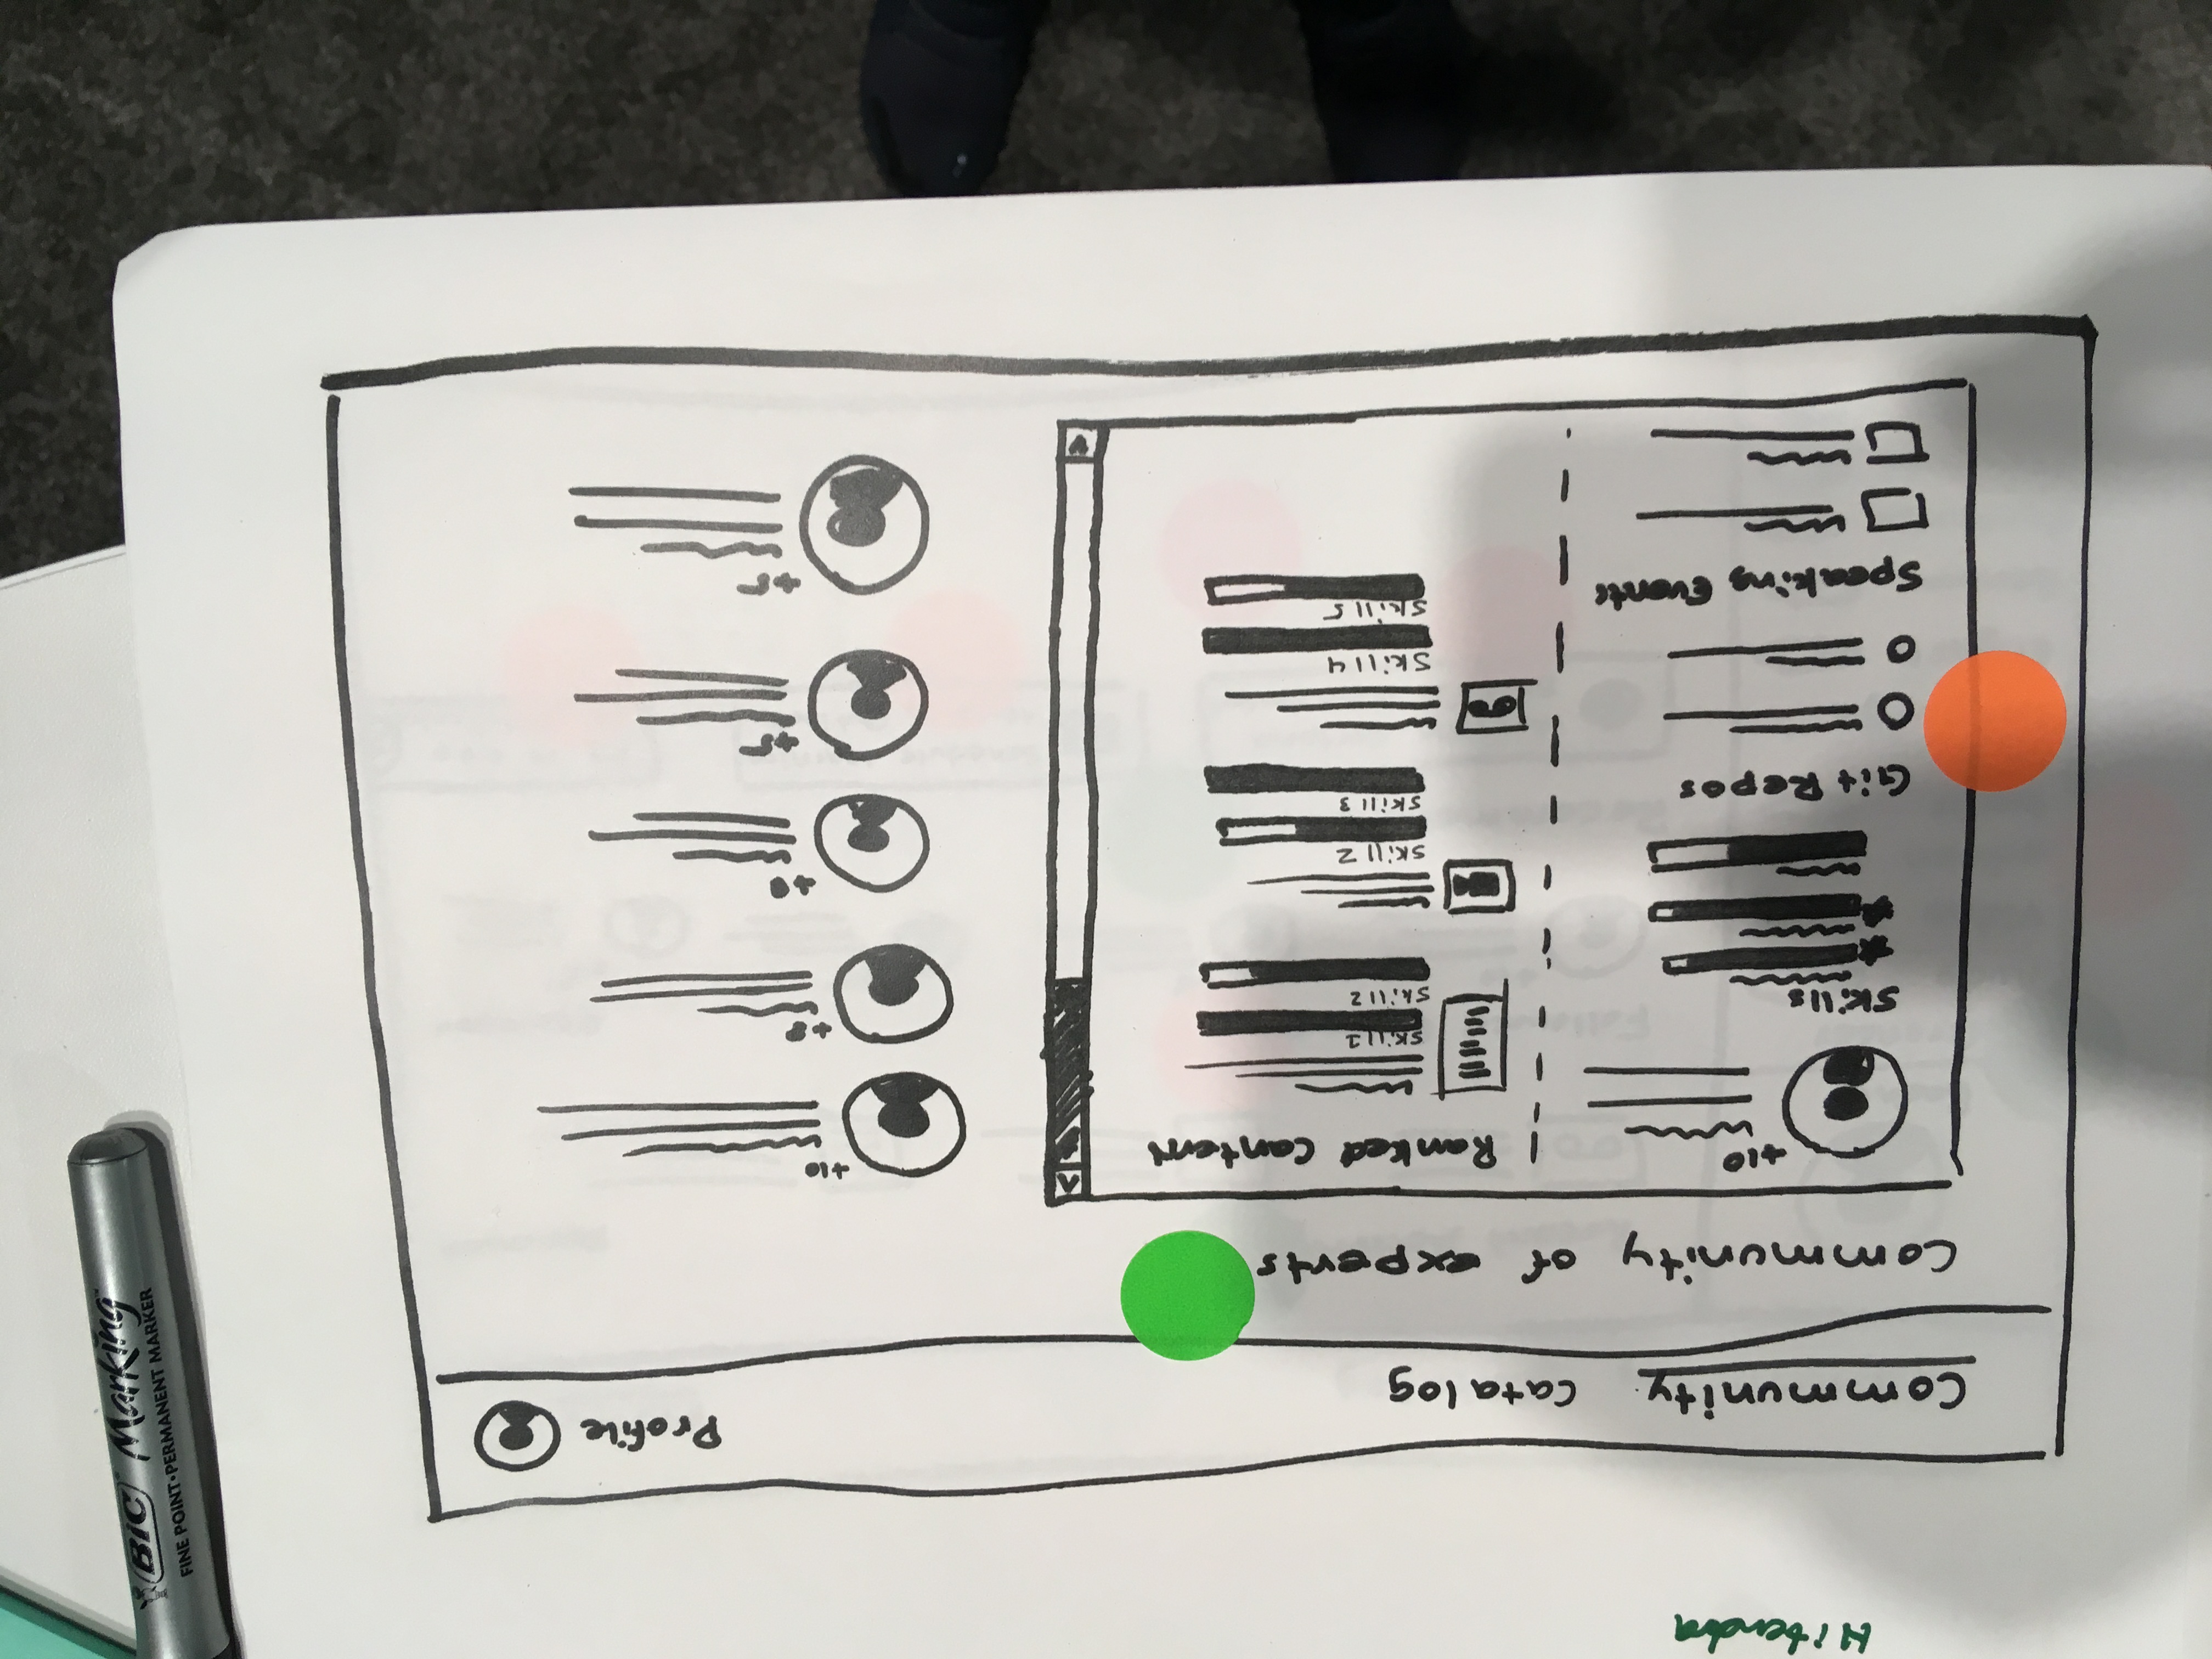 Hitendra
Community Catalog
Profile
Community of experts
+10
Skills
Git Repos
Speaking Events
Ranked Content
Skill 1
Skill 2
Skill 2
Skill 3
Skill 4
Skill 5
+10
+8
+5
+5
BIC Marking
FINE POINT•PERMANENT MARKER